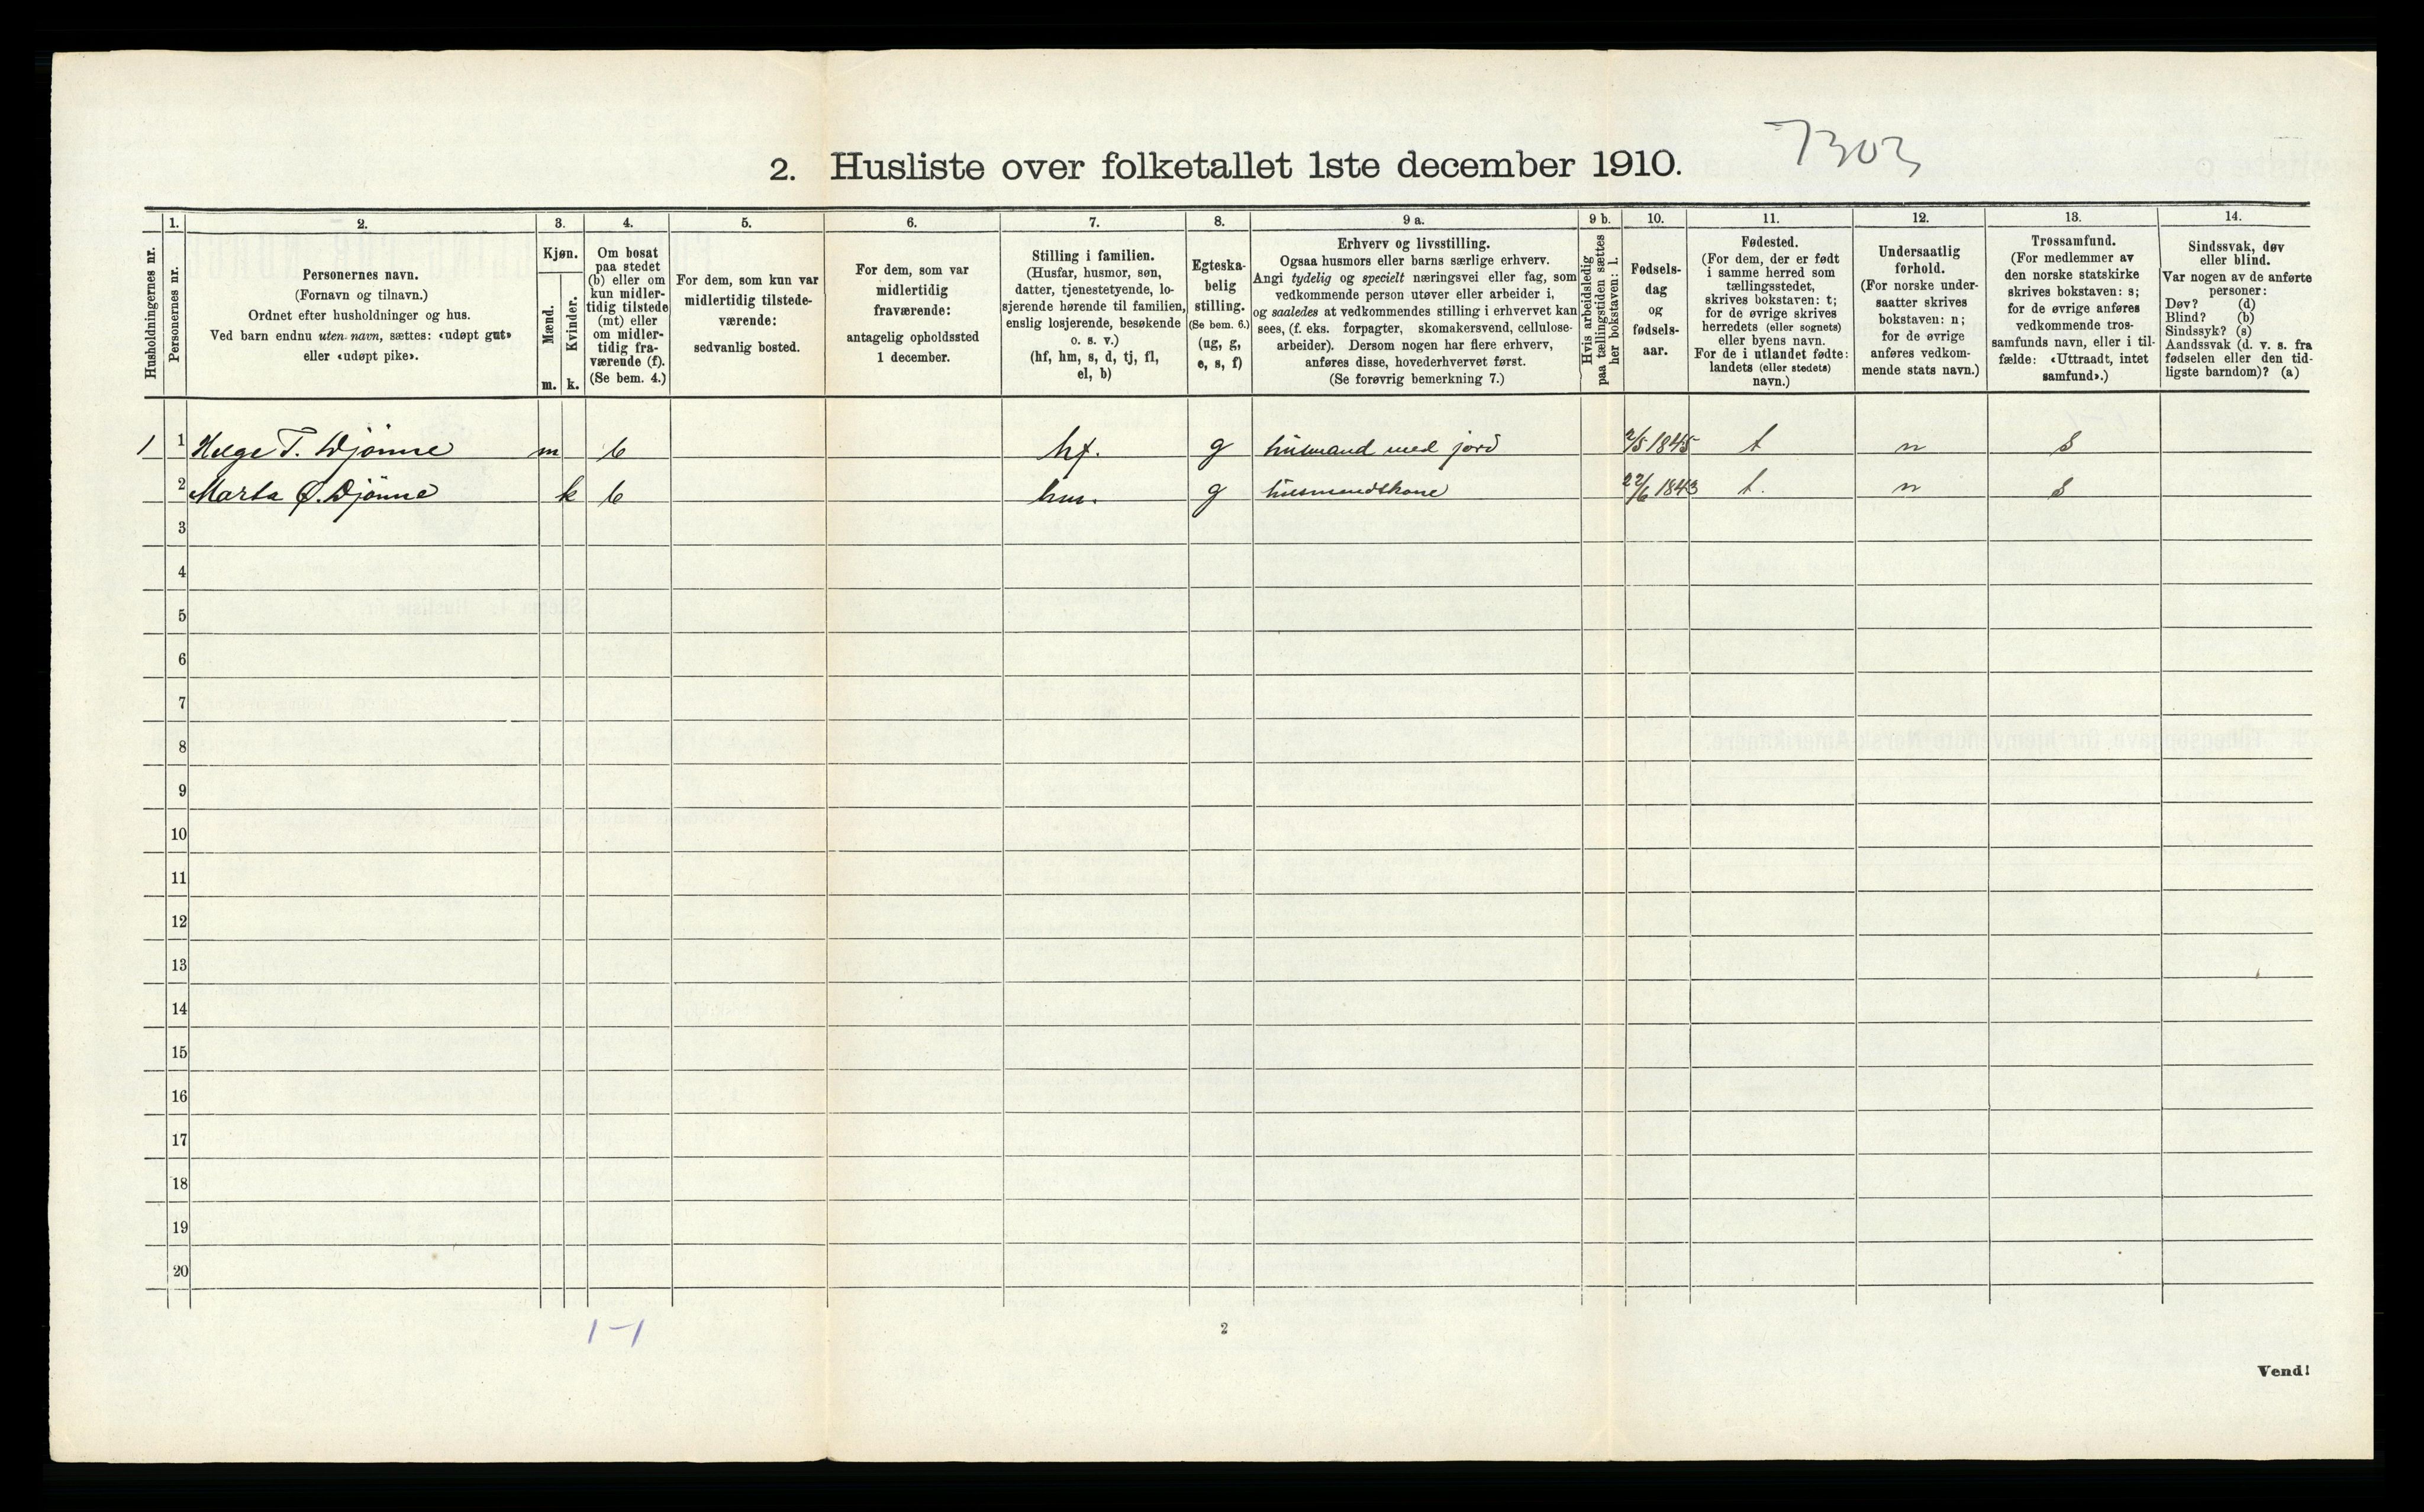 7303
2. Husliste over folketallet 1ste december 1910.
Husholdningernes nr.
1.
Personernes nr.
2.
Personernes navn.
(Fornavn og tilnavn.)
Ordnet efter husholdninger og hus.
Ved barn endnu uten navn, sættes: «udøpt gut»
eller «udøpt pike».
3.
Kjøn.
Mænd.
Kvinder.
m. k.
4.
Om bosat
paa stedet
(b) eller om
kun midler-
tidig tilstede
(mt) eller
om midler-
tidig fra-
værende (f).
(Se bem. 4.)
5.
For dem, som kun var
midlertidig tilstede-
værende:
sedvanlig bosted.
6.
For dem, som var
midlertidig
fraværende:
antagelig opholdssted
1 december.
7.
Stilling i familien.
(Husfar, husmor, søn,
datter, tjenestetyende, lo-
sjerende hørende til familien,
enslig losjerende, besøkende
o. s. v.)
(hf, hm, s, d, tj, fl,
el, b)
8.
Egteska-
belig
stilling.
(Se bem. 6.)
(ug, g,
e, s, f)
9 a.
Erhverv og livsstilling.
Ogsaa husmors eller barns særlige erhverv.
Angi tydelig og specielt næringsvei eller fag, som
vedkommende person utøver eller arbeider i,
og saaledes at vedkommendes stilling i erhvervet kan
sees, (f. eks. forpagter, skomakersvend, cellulose-
arbeider). Dersom nogen har flere erhverv,
anføres disse, hovederhvervet først.
(Se forøvrig bemerkning 7.)
9 b.
Hvis arbeidsledig
paa tællingstiden sættes
her bokstaven: l.
10.
Fødsels-
dag
og
fødsels-
aar.
11.
Fødested.
(For dem, der er født
i samme herred som
tællingsstedet,
skrives bokstaven: t;
for de øvrige skrives
herredets (eller sognets)
eller byens navn.
For de i utlandet fødte:
landets (eller stedets)
navn.)
12.
Undersaatlig
forhold.
(For norske under-
saatter skrives
bokstaven: n;
for de øvrige
anføres vedkom-
mende stats navn.)
13.
Trossamfund.
(For medlemmer av
den norske statskirke
skrives bokstaven: s;
for de øvrige anføres
vedkommende tros-
samfunds navn, eller i til-
fælde: «Uttraadt, intet
samfund».)
14.
Sindssvak, døv
eller blind.
Var nogen av de anførte
personer:
Døv? (d)
Blind? (b)
Sindssyk? (s)
Aandssvak (d. v. s. fra
fødselen eller den tid-
ligste barndom)? (a)
1 1 Helge T. Djönne m b hf. g husmand med jord 2/5 1845 t n s
2 Marta Ø. Djönne k b hm. g husmendskone 22/6 1843 t. n s
3
4
5
6
7
8
9
10
11
12
13
14
15
16
17
18
19
20
1-1
2
Vend!